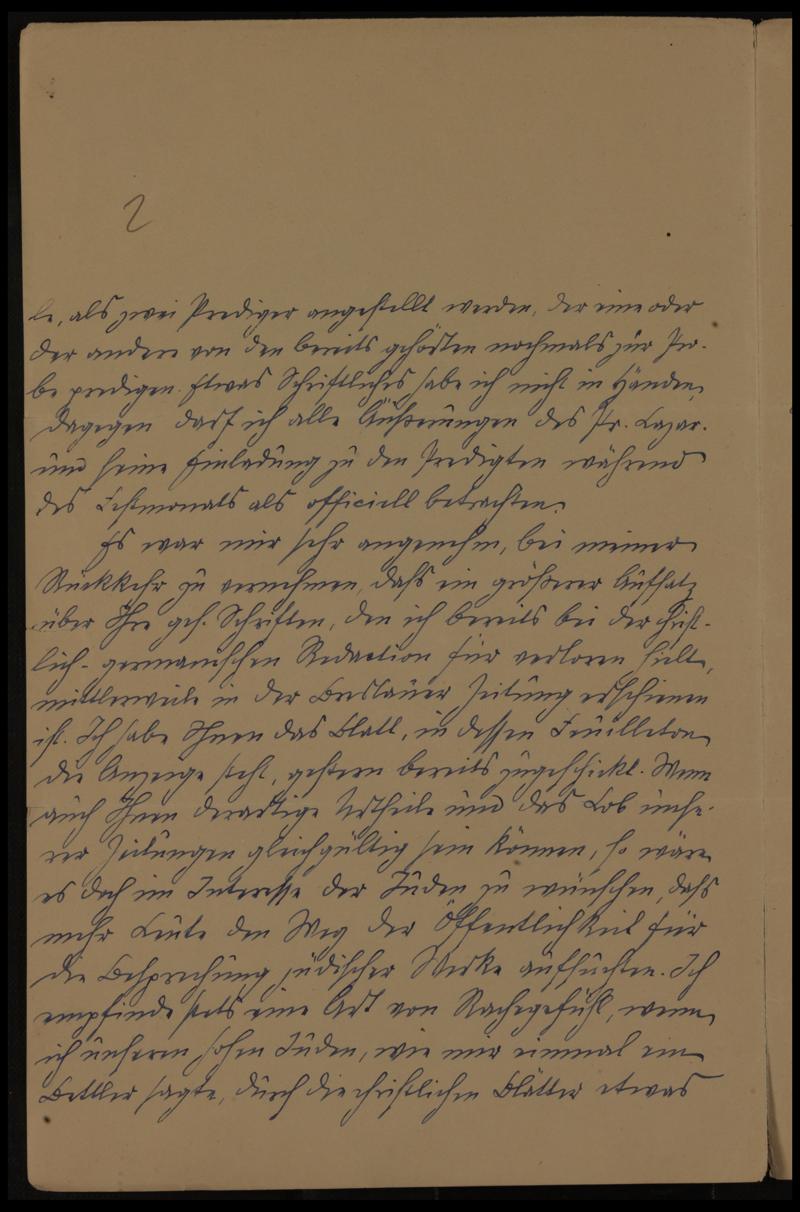 2
le, als zwei Prediger angestellt werden, der eine oder
der andere von den bereits gehörten nochmals zur Pro-
be predigen. Etwas Schriftliches habe ich nicht in Händen,
dagegen darf ich alle Äußerungen des Pr. Lazar.
und seine Einladung zu den Predigten während
des Festmonats als officiell betrachten.
Es war mir sehr angenehm, bei meiner
Rückkehr zu vernehmen, daß ein größerer Aufsatz
über Ihre ges. Schriften, den ich bereits bei der christ-
lich-germanischen Redaction für verloren hielt,
mittlerweile in der Breslauer Zeitung erschienen
ist. Ich habe Ihnen das Blatt, in dessen Feuilleton
die Anzeige steht, gestern bereits zugeschickt. Wenn
auch Ihnen derartige Urtheile und das Lob unse-
rer Zeitungen gleichgültig sein können, so wäre
es doch im Interesse der Juden zu wünschen, daß
mehr Leute den Weg der Öffentlichkeit für
die Besprechung jüdischer Werke aufsuchten. Ich
empfinde stets eine Art von Rachegefühl, wenn
ich unseren hohen Juden, wie mir einmal ein
Bettler sagte, durch die christlichen Blätter etwas